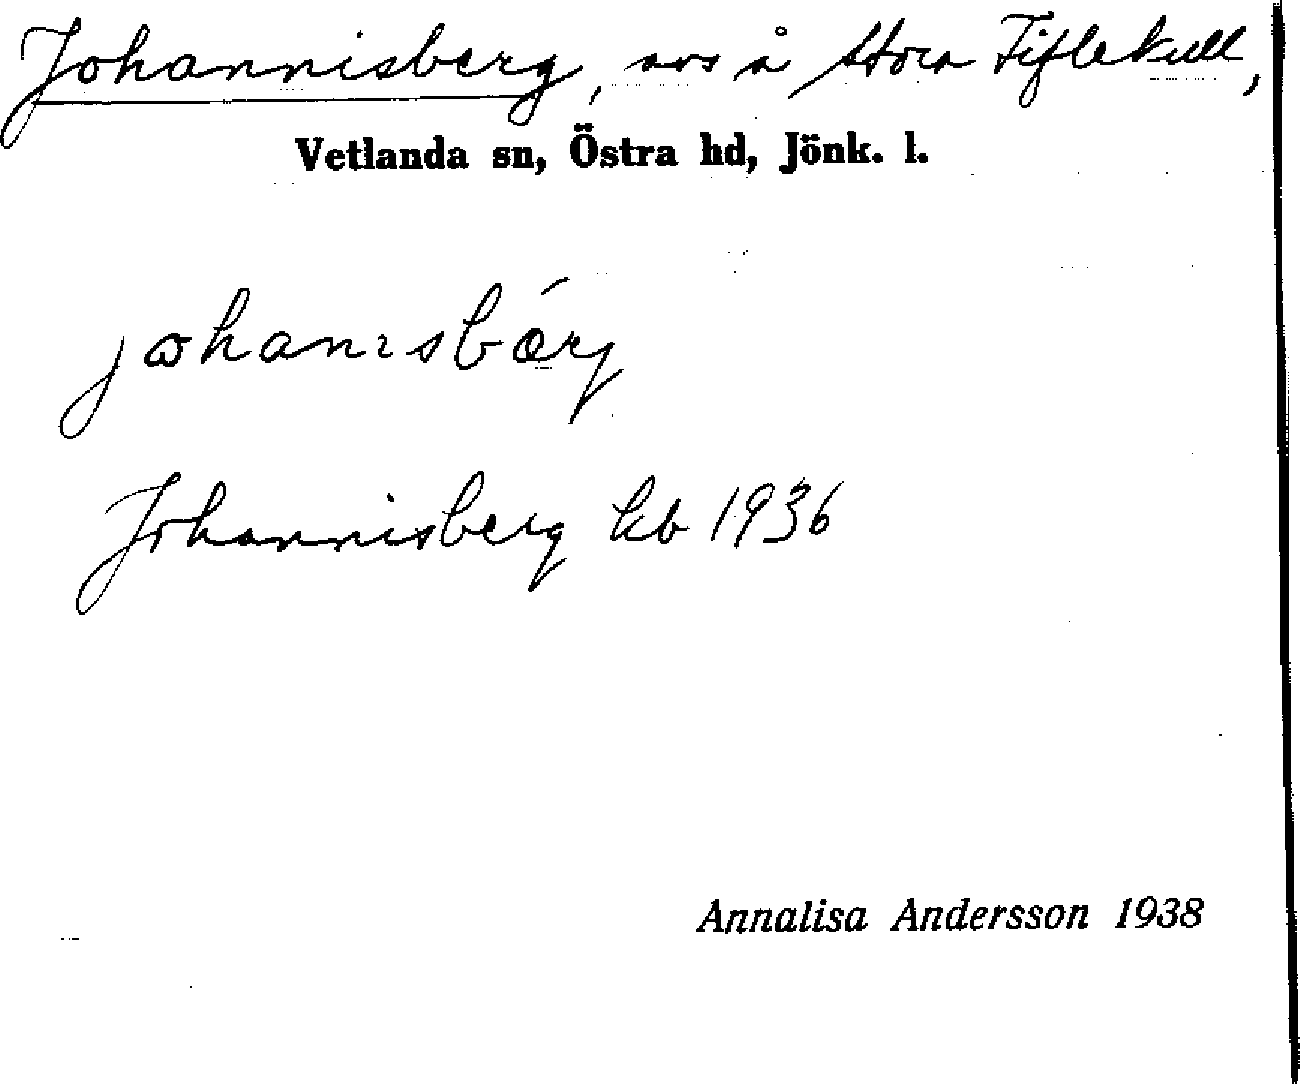 Johannisberg, avs å Stora Fiflekull,
Vetlanda sn, Östra hd, Jönk. l.
johanɪsbærj
Johannisberg kb 1936
Annalisa Andersson 1938